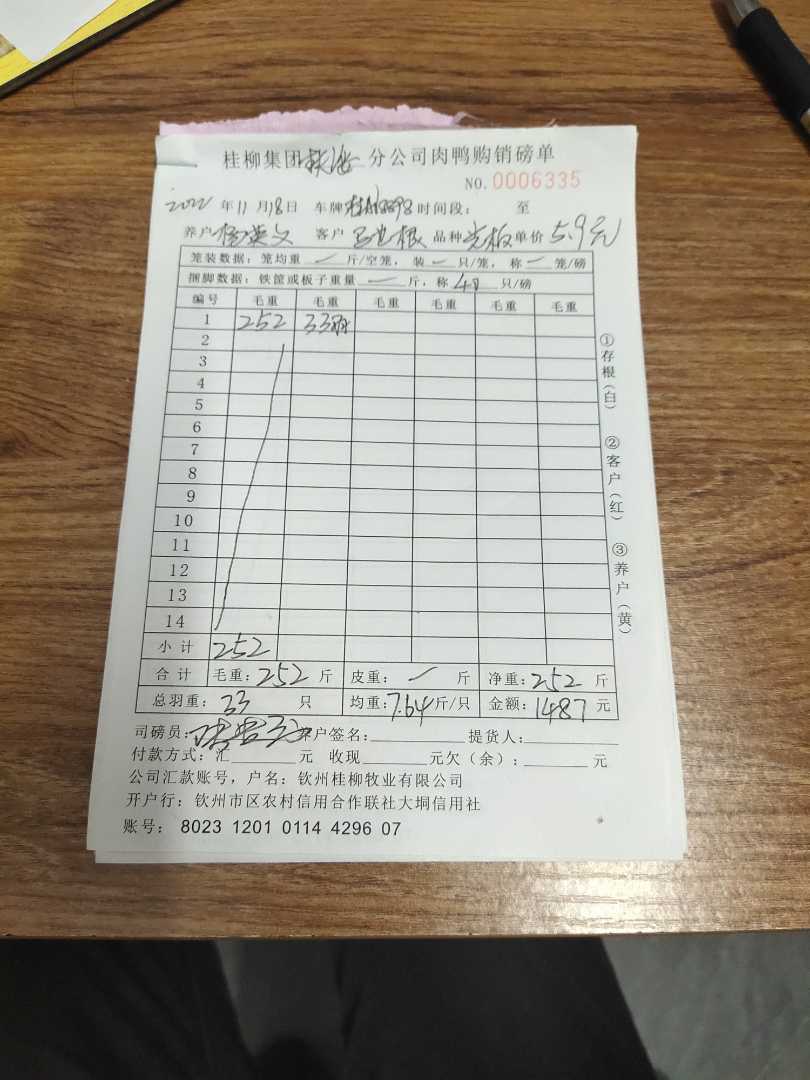 桂柳集团 分公司肉鸭购销磅单
NO. 0006335
2022 年 11 月 18 日 车牌 时间段： 至
养户 杨英文 客户 品种 光板 单价 5.9元
笼装数据：笼均重 — 斤/空笼，装 — 只/笼，称 — 笼/磅
捆脚数据：铁筐或板子重量 — 斤，称 只/磅
编号 毛重 毛重 毛重 毛重 毛重 毛重
1 252 33羽
2
3
4
5
6
7
8
9
10
11
12
13
14
小计 252
合计 毛重：252 斤 皮重： — 斤 净重：252 斤
总羽重：33 只 均重：7.64 斤/只 金额：1487 元
司磅员： 养户签名： 提货人：
付款方式：汇 元 收现 元欠（余）： 元
公司汇款账号，户名：钦州桂柳牧业有限公司
开户行：钦州市区农村信用合作联社大垌信用社
账号： 8023 1201 0114 4296 07
①存根（白） ②客户（红） ③养户（黄）